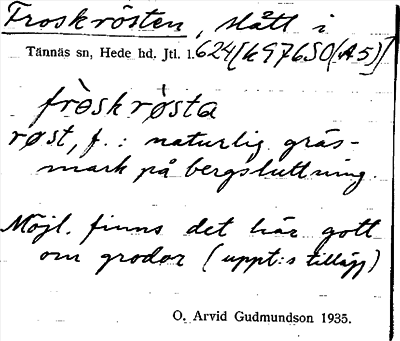 Froskrösten, slått i
Tännäs sn, Hede hd. Jtl. 1.624[k976SO(A5)]
fròskrø̀sta
røst, f.: naturlig gräs-
mark på bergsluttning.
Möjl. finns det här gott
om grodor (uppt:s tillägg)
O. Arvid Gudmundson 1935.